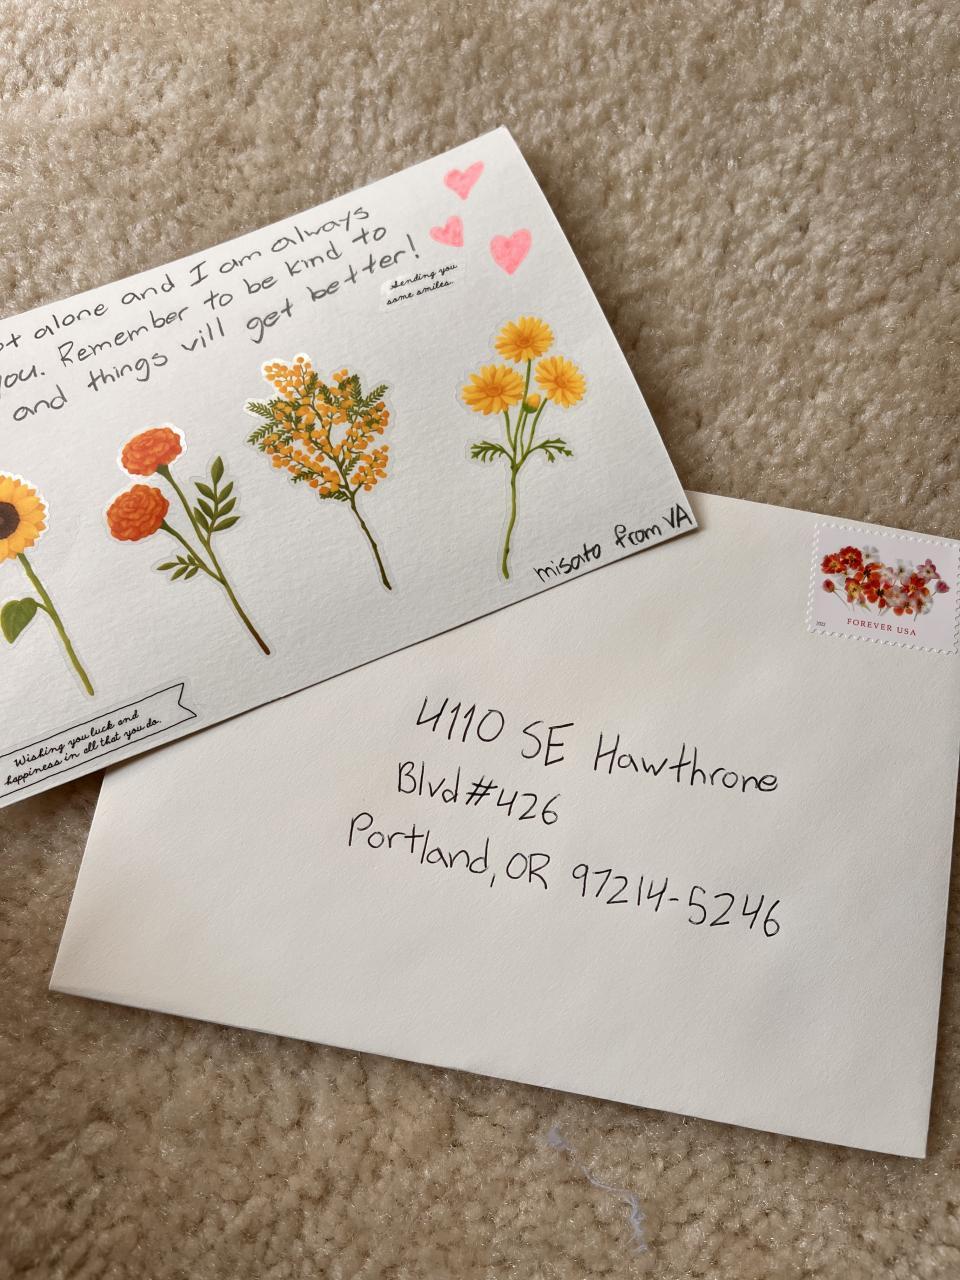 alone and I am always
you. Remember to be kind to
and things will get better!
Sending you
some smiles.
misato from VA
Wishing you luck and
happiness in all that you do.
2022
FOREVER USA
4110 SE Hawthrone
Blvd #426
Portland, OR 97214-5246